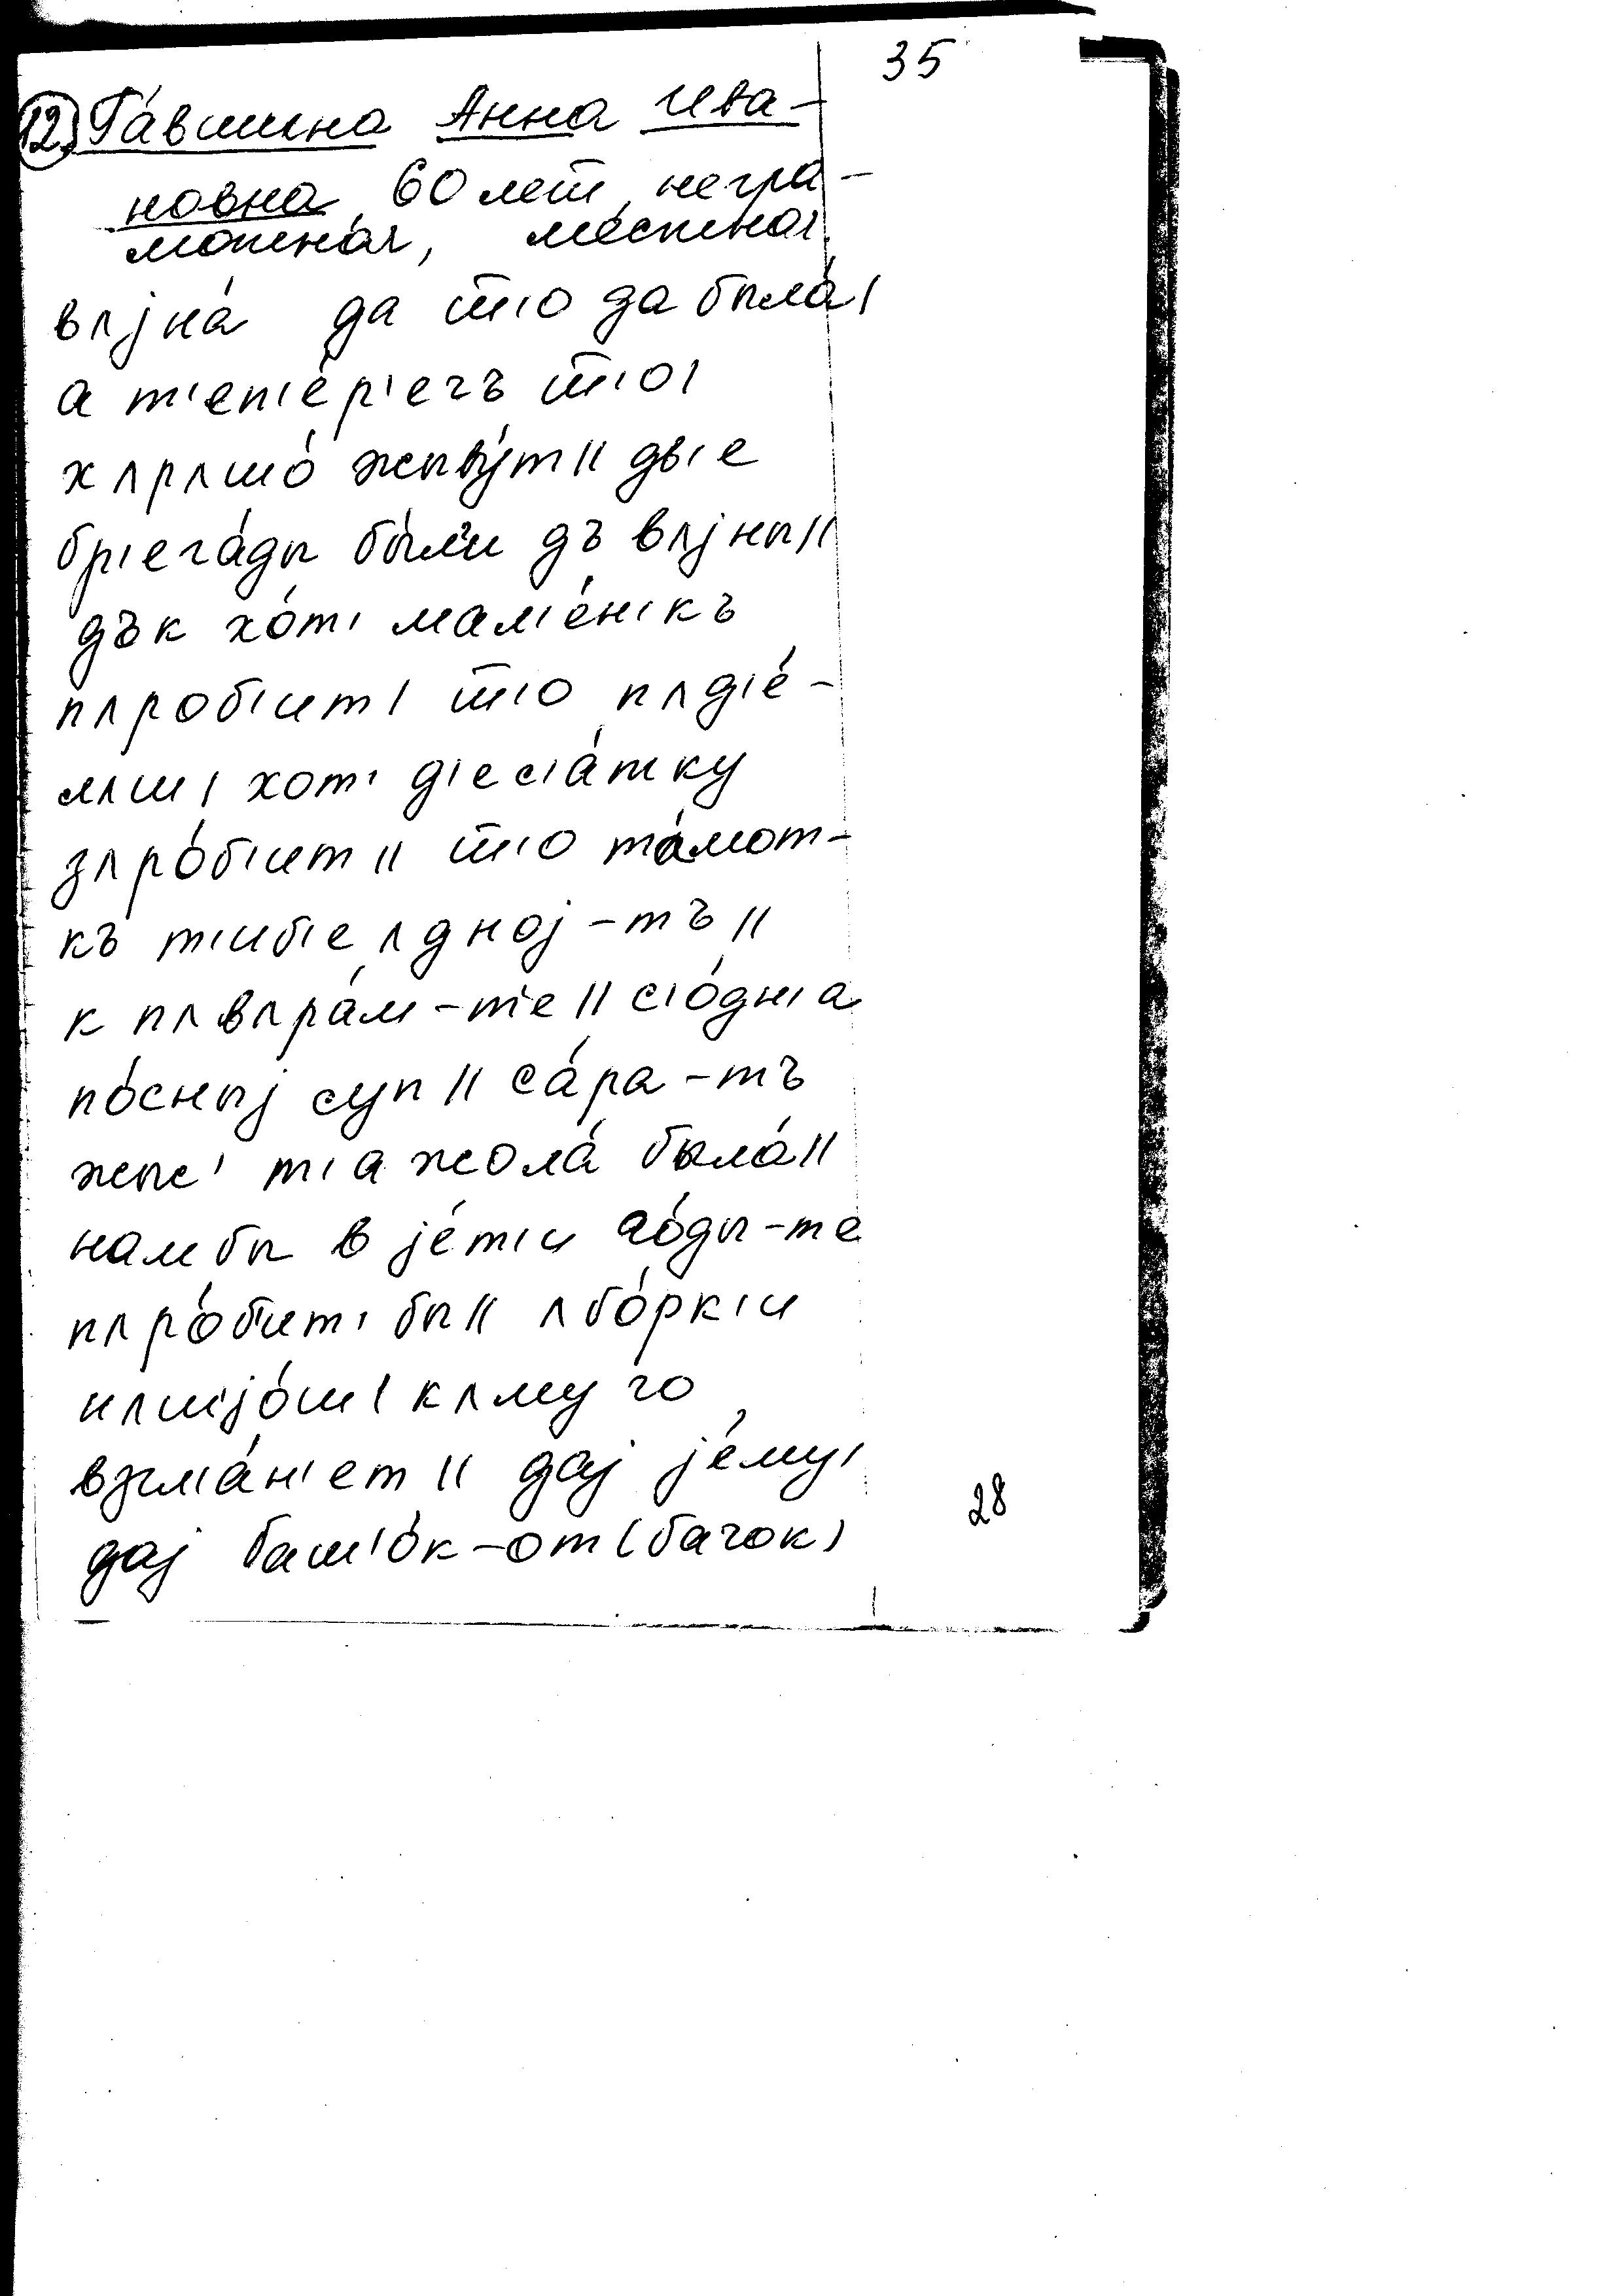 35
12. Га́вшина Анна Ива-
новна, 60 лет, негра-
мотная, местная.
вʌјна́ да што да была́ |
а т'еп'е́р'ечъ што |
хʌрʌшо́ жыву́т || дв'е
бр'ега́ды бы́л'и дъ вʌјны ||
дък хо́т' мал'е́н'къ
пʌроб'ит | што пʌд'е́-
лʌш | хот' д'ес'а́тку
зʌро́б'ит || што та́мот-
къ т'иб'е ʌдној-тъ ||
к пʌвʌра́м-т'е || с'о́дн'а
по́сныј суп || са́ра-тъ
жыс' т'ажола́ была́ ||
нам бы в је́т'и го́ды-те
пʌро́б'ит' бы || ʌбо́рк'и
нʌшјо́ш | кʌму чо
взгл'а́н'ет || дај је́му |
дај баш'о́к-от (бачок)
28